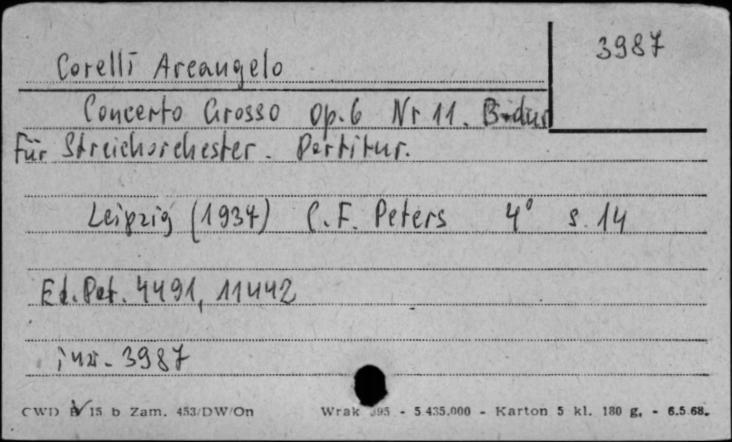 3987
Corelli Arcangelo
Concerto Grosso Op. 6 Nr 11. B-dur
für Streichorchester. Partitur.
Leipzig (1937) C. F. Peters 4° s. 14
Ed. Pet. 4491, 11442
inw. 3987
CWD B/15 b Zam. 453/DW/On Wrak 395 - 5.435.000 - Karton 5 kl. 180 g. - 6.5.68.